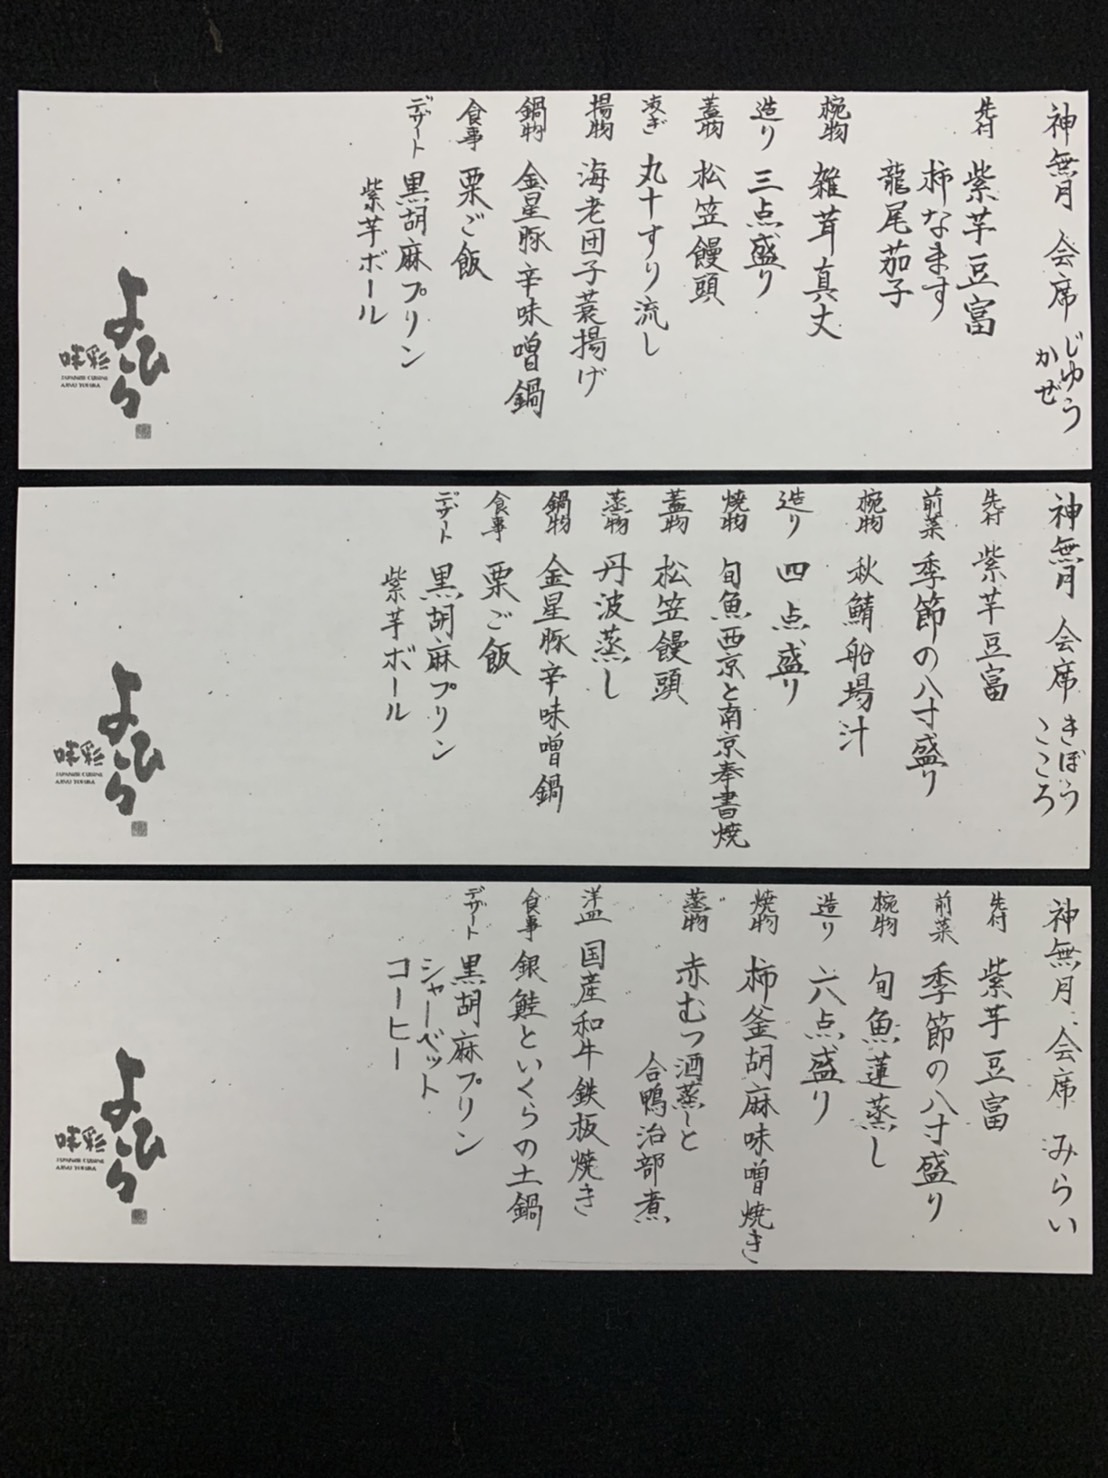 神無月 会席 じゆう
かぜ
先付 紫芋豆富
柿なます
龍尾茄子
椀物 雑茸真丈
造り 三点盛り
蓋物 松笠饅頭
凌ぎ 丸十すり流し
揚物 海老団子蓑揚げ
鍋物 金星豚辛味噌鍋
食事 栗ご飯
デザート 黒胡麻プリン
紫芋ボール
よひら
神無月 会席 きぼう
こころ
先付 紫芋豆富
前菜 季節の八寸盛り
椀物 秋鯖船場汁
造り 四点盛り
焼物 旬魚西京と南京奉書焼
蓋物 松笠饅頭
蒸物 丹波蒸し
鍋物 金星豚辛味噌鍋
食事 栗ご飯
デザート 黒胡麻プリン
紫芋ボール
よひら
神無月 会席 みらい
先付 紫芋豆富
前菜 季節の八寸盛り
椀物 旬魚蓮蒸し
造り 六点盛り
焼物 柿釜胡麻味噌焼き
蒸物 赤むつ酒蒸しと
合鴨治部煮
洋皿 国産和牛鉄板焼き
食事 銀鮭といくらの土鍋
デザート 黒胡麻プリン
シャーベット
コーヒー
よひら